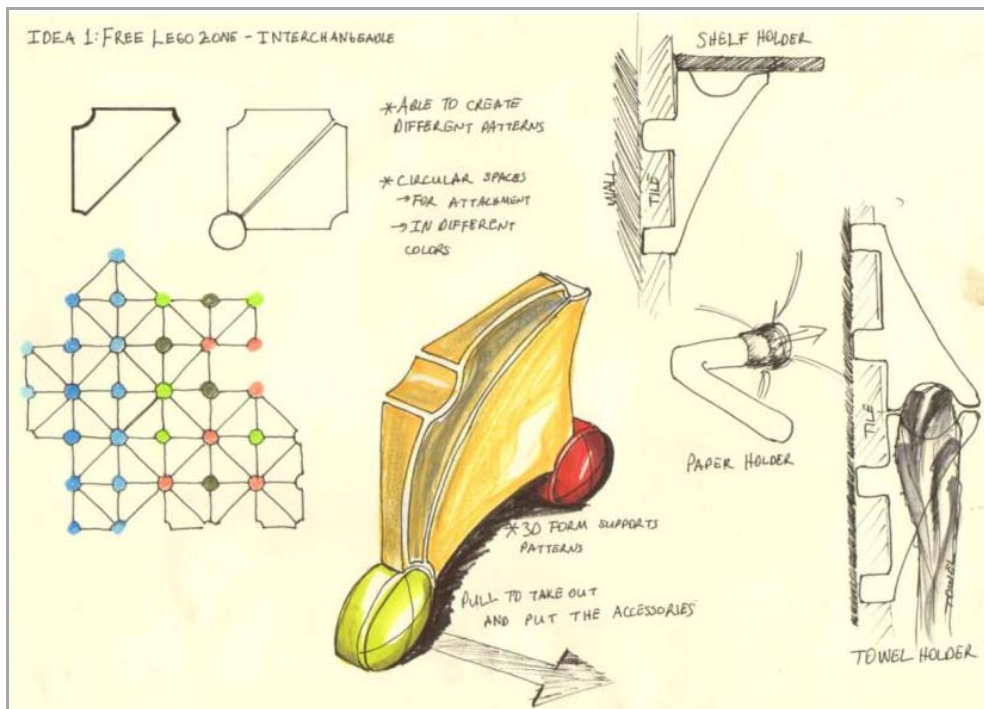 IDEA 1: FREE LEGO ZONE - INTERCHANGEABLE
* ABLE TO CREATE
DIFFERENT PATTERNS
* CIRCULAR SPACES
→ FOR ATTACHMENT
→ IN DIFFERENT
COLORS
SHELF HOLDER
WALL
TILE
PAPER HOLDER
TILE
TOWEL
TOWEL HOLDER
* 3D FORM SUPPORTS
PATTERNS
PULL TO TAKE OUT
AND PUT THE ACCESSORIES